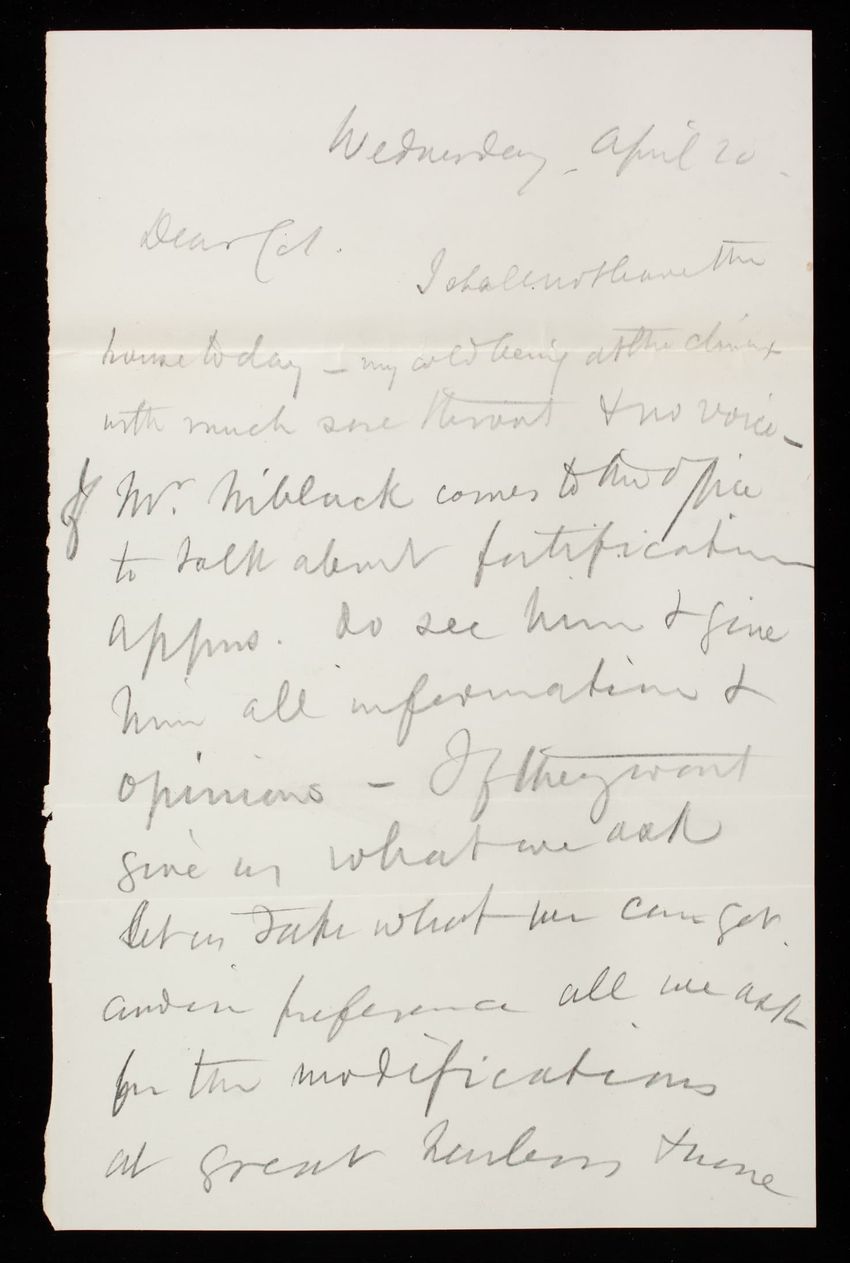 Wednesday, April 20.
Dear Col.
I shall not leave the
house today – my cold being at the climax
with much sore throat & no voice –
If Mr. Niblack comes to the office
to talk about fortification
appns. Do see him & give
him all information &
opinions – If they wont
give us what we ask
let us take what we can get.
and in preference all we ask
for the modifications
at great harbors & none